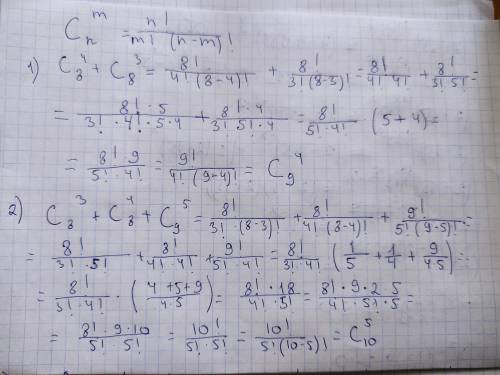 C_n^m = n! / m! (n-m)!
1) C_8^4 + C_8^3 = 8! / 4! (8-4)! + 8! / 3! (8-3)! = 8! / 4! 4! + 8! / 3! 5! =
= 8! · 5 / 3! · 4! · 5 · 4 + 8! · 4 / 3! 5! · 4 = 8! / 5! · 4! (5 + 4) =
= 8! · 9 / 5! · 4! = 9! / 4! (9-4)! = C_9^4
2) C_8^3 + C_8^4 + C_9^5 = 8! / 3! · (8-3)! + 8! / 4! (8-4)! + 9! / 5! (9-5)! =
= 8! / 3! · 5! + 8! / 4! · 4! + 9! / 5! · 4! = 8! / 3! · 4! (1/5 + 1/4 + 9/4·5) =
= 8! / 3! · 4! · (4+5+9 / 4·5) = 8! · 18 / 4! · 5! = 8! · 9 · 2 · 5 / 4! · 5! · 5 =
= 8! · 9 · 10 / 5! · 5! = 10! / 5! · 5! = 10! / 5! (10-5)! = C_10^5